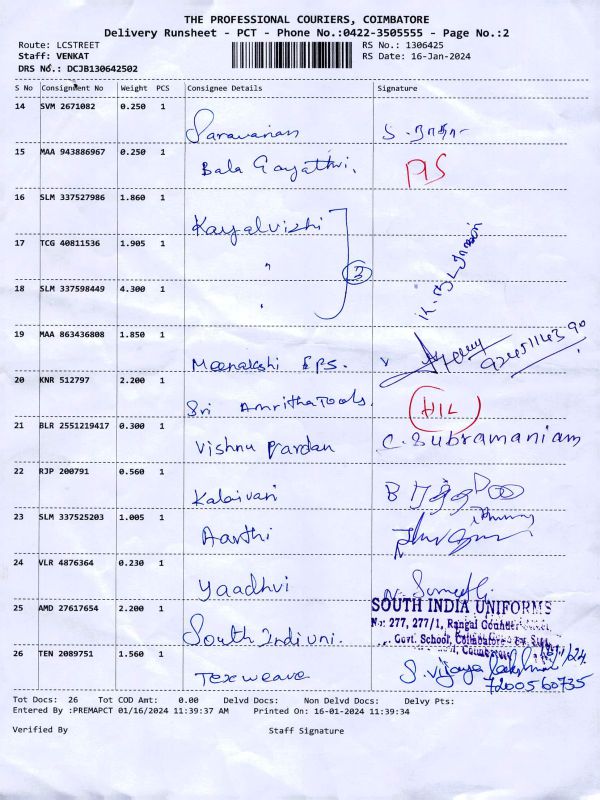 THE PROFESSIONAL COURIERS, COIMBATORE
Delivery Runsheet - PCT - Phone No.:0422-3505555 - Page No.:2
Route: LCSTREET RS No.: 1306425
Staff: VENKAT RS Date: 16-Jan-2024
DRS No.: DCJB130642502
S No Consignment No Weight PCS Consignee Details Signature
14 SVM 2671082 0.250 1
Saravanan
15 MAA 943886967 0.250 1
Bala Gayathri.
16 SLM 337527986 1.860 1
Kayalvizhi
17 TCG 40811536 1.905 1
" 3
18 SLM 337598449 4.300 1
"
19 MAA 863436808 1.850 1
Meenakshi EPS. 9245114390
20 KNR 512797 2.200 1
Sri Amritha Tools. HIL
21 BLR 2551219417 0.300 1
Vishnu Pardan C. Subramaniam
22 RJP 200791 0.560 1
Kalaivani
23 SLM 337525203 1.005 1
Aarthi
24 VLR 4876364 0.230 1
Yaadhvi
25 AMD 27617654 2.200 1
SOUTH INDIA UNIFORMS
No: 277, 277/1, Rangai Gounder
Govt. School, Coimbatore
Coimbatore
South Indi uni.
26 TEN 2089751 1.560 1
Texweave S. Vijaya lakshmi
7200560735
Tot Docs: 26 Tot COD Amt: 0.00 Delvd Docs: Non Delvd Docs: Delvy Pts:
Entered By :PREMAPCT 01/16/2024 11:39:37 AM Printed On: 16-01-2024 11:39:34
Verified By Staff Signature